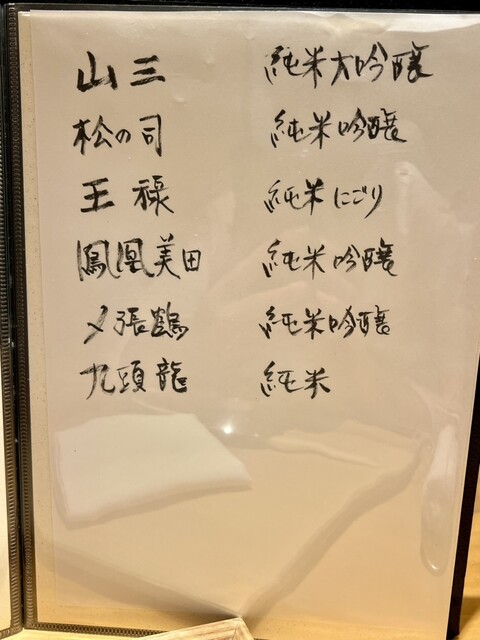 山三 純米大吟醸
松の司 純米吟醸
王祿 純米にごり
鳳凰美田 純米吟醸
〆張鶴 純米吟醸
九頭龍 純米